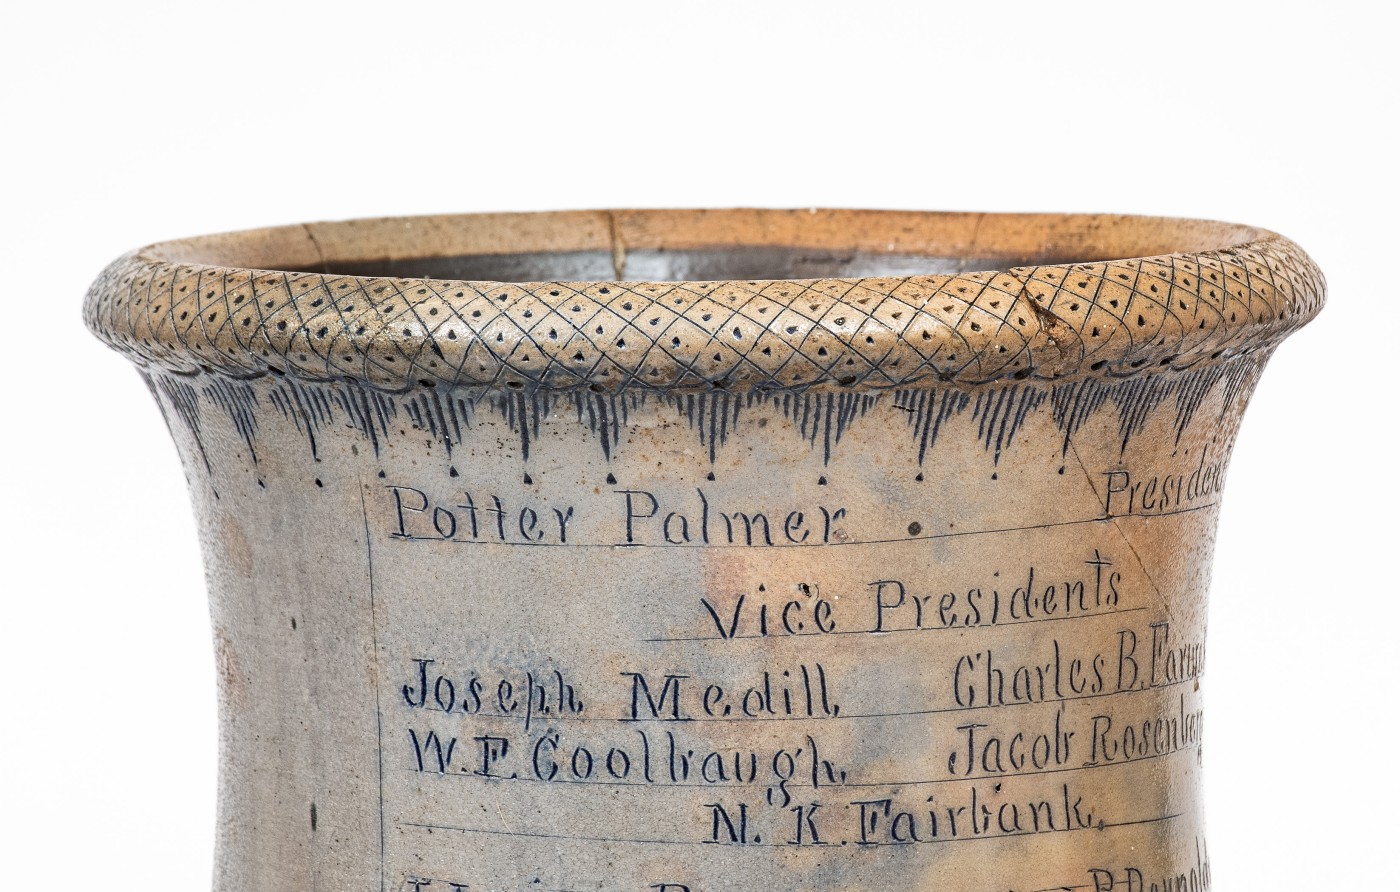 Potter Palmer. President
Vice Presidents
Joseph Medill, Charles B.
W.F. Coolbaugh, Jacob
N. K. Fairbank.